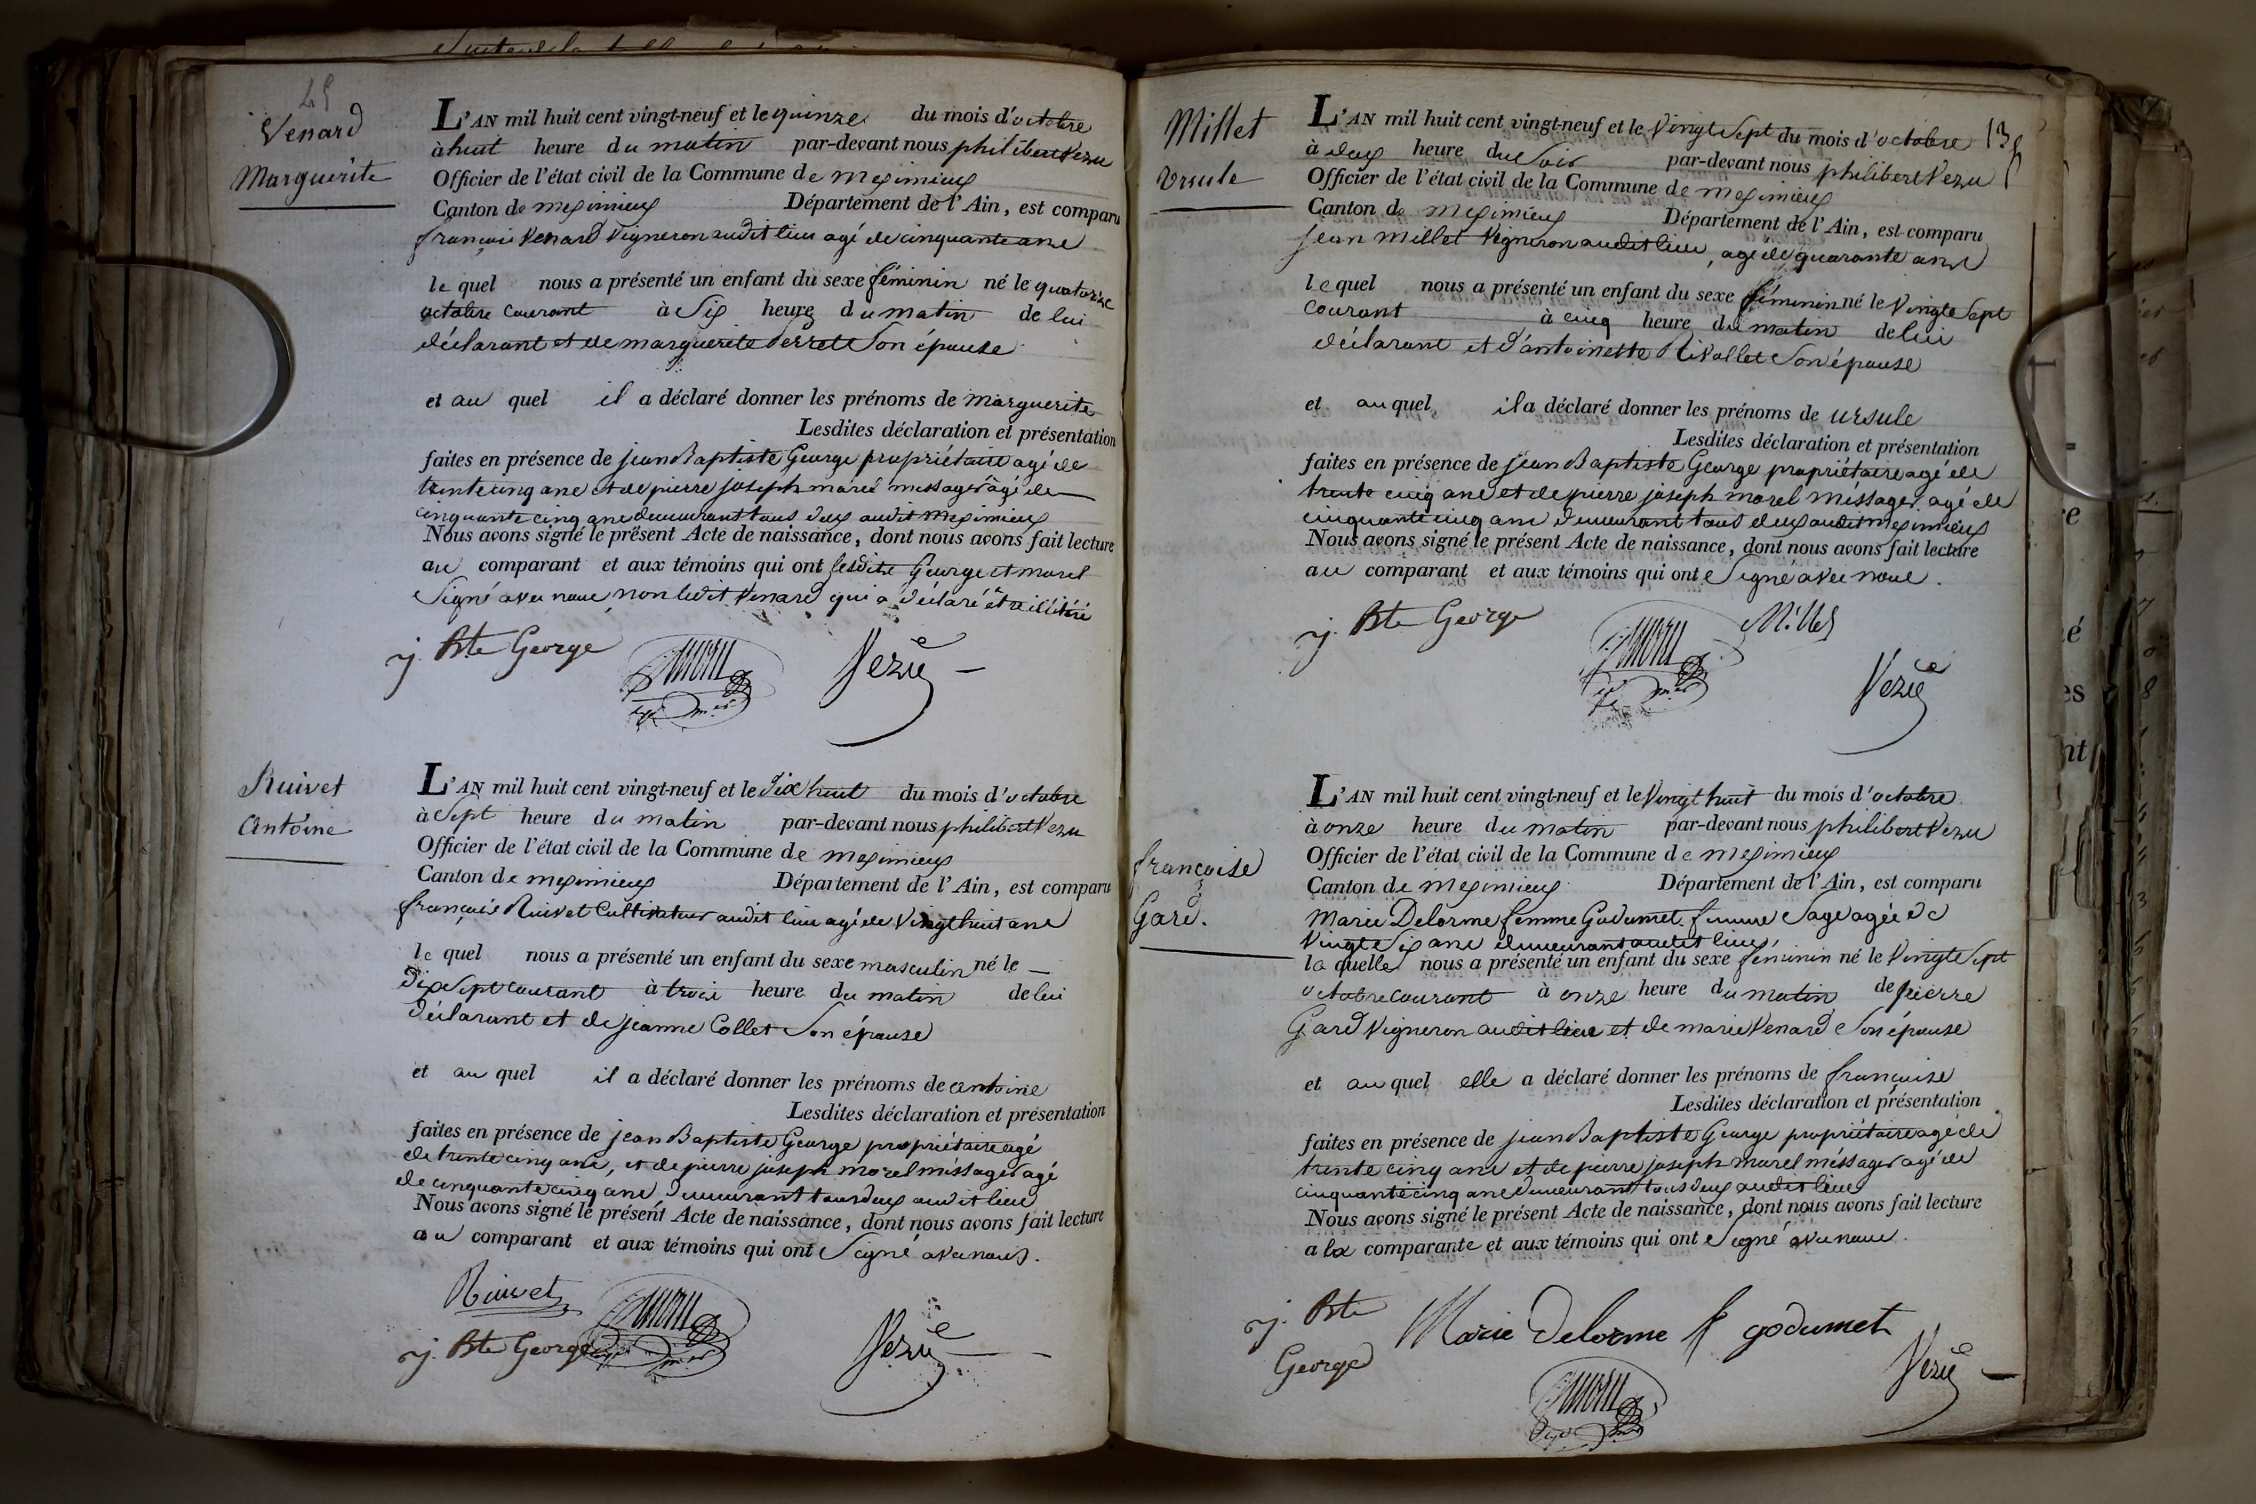 Venard
Marguerite
L'AN mil huit cent vingt-neuf et le quinze du mois d'octobre
à huit heure du matin par-devant nous philibert Vezu
Officier de l'état civil de la Commune de meximieux
Canton de meximieux Département de l'Ain, est comparu
françois Venard Vigneron audit lieu agé de cinquante ans
le quel nous a présenté un enfant du sexe féminin né le quatorze
octobre courant à Six heures du matin de lui
déclarant et de marguerite Perret Son épouse
et au quel il a déclaré donner les prénoms de marguerite
Lesdites déclaration et présentation
faites en présence de jean Baptiste George propriétaire agé de
trente cinq ans et de pierre joseph morel messager agé de
cinquante cinq ans demeurant tous deux audit meximieux
Nous avons signé le présent Acte de naissance, dont nous avons fait lecture
au comparant et aux témoins qui ont lesdits George et morel
Signé avec nous, non ledit Venard qui a déclaré être illitéré
j. Bte George
Vezu
Ruivet
antoine
L'AN mil huit cent vingt-neuf et le dix huit du mois d'octobre
à Sept heure du matin par-devant nous philibert Vezu
Officier de l'état civil de la Commune de meximieux
Canton de meximieux Département de l'Ain, est comparu
françois Ruivet Cultivateur audit lieu agé de Vingt huit ans
le quel nous a présenté un enfant du sexe masculin né le
dix Sept courant à trois heure du matin de lui
déclarant et de jeanne Collet Son épouse
et au quel il a déclaré donner les prénoms de antoine
Lesdites déclaration et présentation
faites en présence de jean Baptiste George propriétaire agé
de trente cinq ans, et de pierre joseph morel méssager agé
de cinquante cinq ans demeurant tous deux audit lieu
Nous avons signé le présent Acte de naissance, dont nous avons fait lecture
au comparant et aux témoins qui ont Signé avec nous.
Ruivet
j. Bte George
Vezu
Millet
Ursule
L'AN mil huit cent vingt-neuf et le Vingt Sept du mois d'octobre
à deux heure du Soir par-devant nous philibert Vezu
Officier de l'état civil de la Commune de meximieux
Canton de meximieux Département de l'Ain, est comparu
jean Millet Vigneron audit lieu, agé de quarante ans
le quel nous a présenté un enfant du sexe féminin né le Vingt Sept
courant à cinq heure du matin de lui
déclarant et d'antoinette Rivollet Son épouse
et au quel il a déclaré donner les prénoms de ursule
Lesdites déclaration et présentation
faites en présence de jean Baptiste George propriétaire agé de
trente cinq ans et de pierre joseph morel méssager agé de
cinquante cinq ans demeurant tous deux audit meximieux
Nous avons signé le présent Acte de naissance, dont nous avons fait lecture
au comparant et aux témoins qui ont Signé avec nous.
j. Bte George
Millet
Vezu
françoise
Gard.
L'AN mil huit cent vingt-neuf et le Vingt huit du mois d'octobre
à onze heure du matin par-devant nous philibert Vezu
Officier de l'état civil de la Commune de meximieux
Canton de meximieux Département de l'Ain, est comparu
Marie Delorme femme Godumet femme Sage agée de
Vingt Six ans demeurant audit lieu,
la quelle nous a présenté un enfant du sexe féminin né le Vingt Sept
octobre courant à onze heure du matin de pierre
Gard Vigneron audit lieu et de marie Venard Son épouse
et au quel elle a déclaré donner les prénoms de françoise
Lesdites déclaration et présentation
faites en présence de jean Baptiste George propriétaire agé de
trente cinq ans et de pierre joseph morel méssager agé de
cinquante cinq ans demeurant tous deux audit lieu
Nous avons signé le présent Acte de naissance, dont nous avons fait lecture
a la comparante et aux témoins qui ont Signé avec nous.
j. Bte
George
Marie delorme f godumet
Vezu